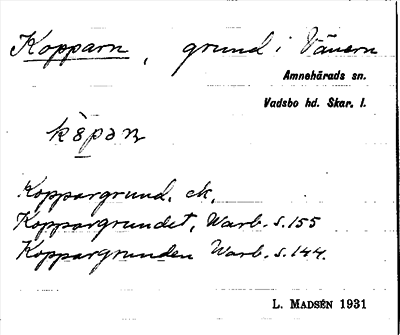 Kopparn, grund i Vänern
Amnehärads sn.
Vadsbo hd. Skar. l.
Koppargrund. ek.
Koppargrundet, Warb. s. 155
Koppargrunden Warb. s. 144.
L. MADSÉN 1931